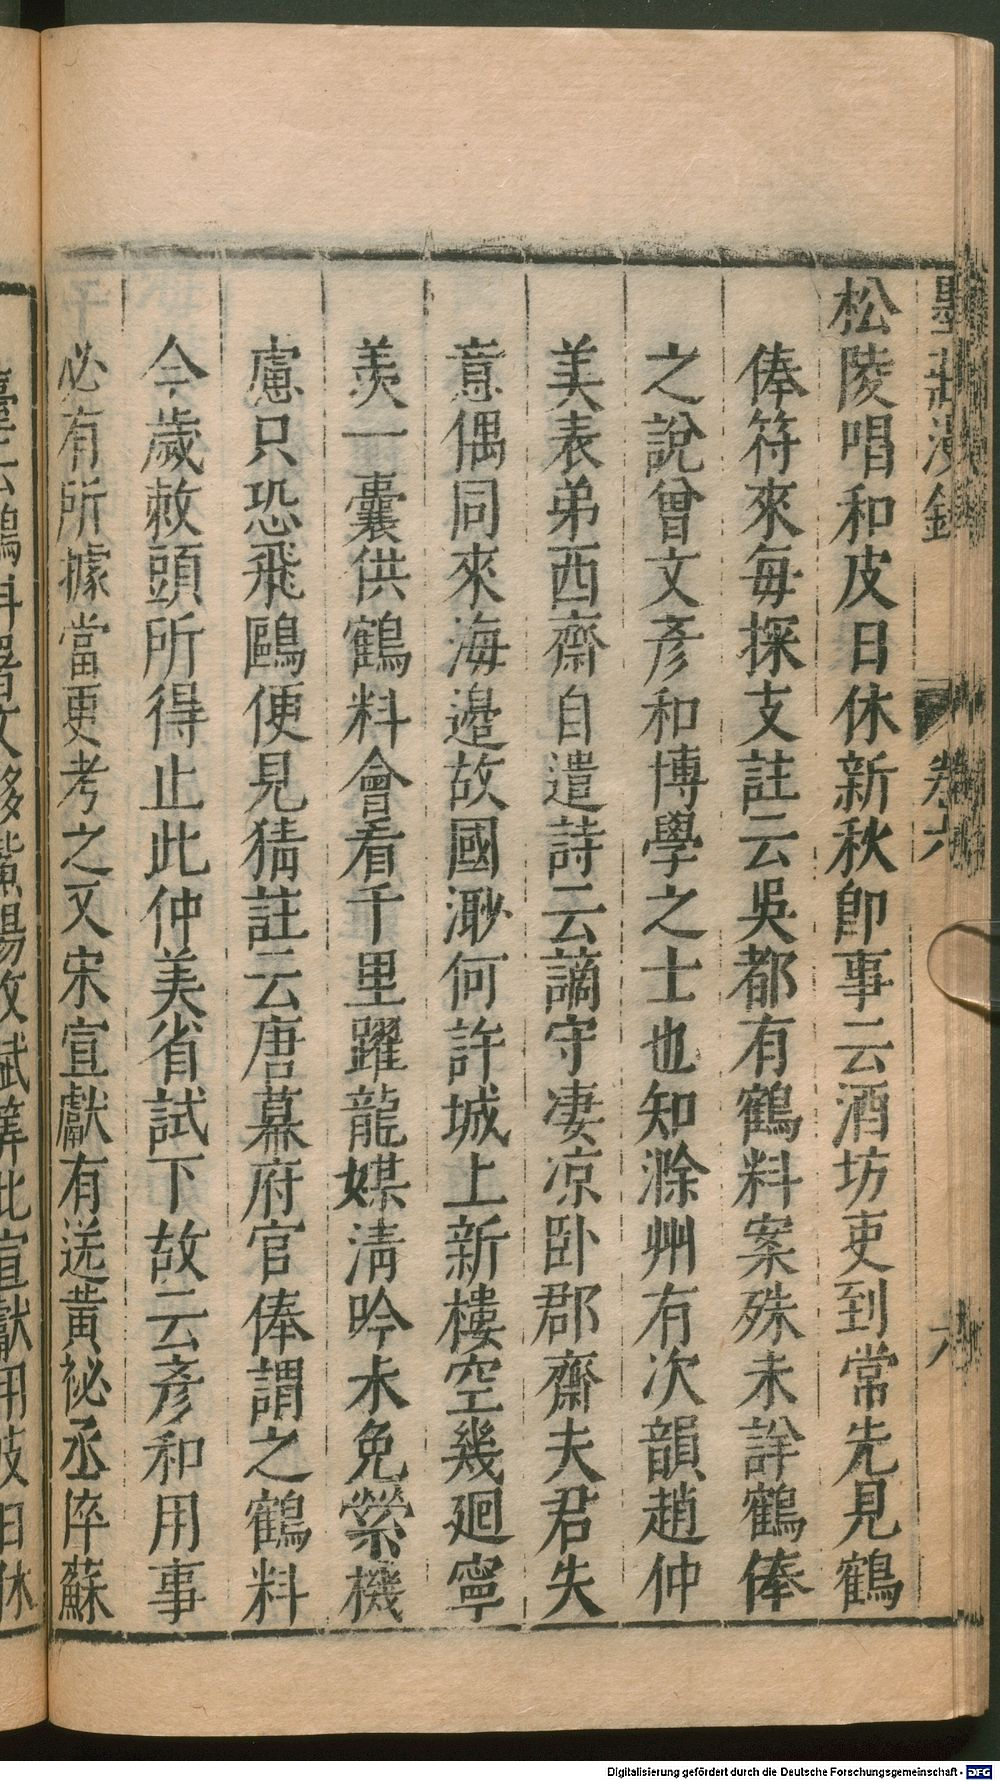 墨莊漫錄
卷六
六
松陵唱和皮日休新秋卽事云酒坊吏到常先見鶴
俸符來每探支註云吳都有鶴料案殊未詳鶴俸
之說曾文彥和博學之士也知滁州有次韻趙仲
美表弟西齋自遣詩云謫守凄凉臥郡齋夫君失
意偶同來海邊故國渺何許城上新樓空幾迴寧
羨一囊供鶴料會看千里躍龍媒淸吟未免縈機
慮只恐飛鷗便見猜註云唐幕府官俸謂之鶴料
今歲敕頭所得止此仲美省試下故云彥和用事
必有所據當更考之又宋宣獻有送黃祕丞倅蘇
Digitalisierung gefördert durch die Deutsche Forschungsgemeinschaft - DFG